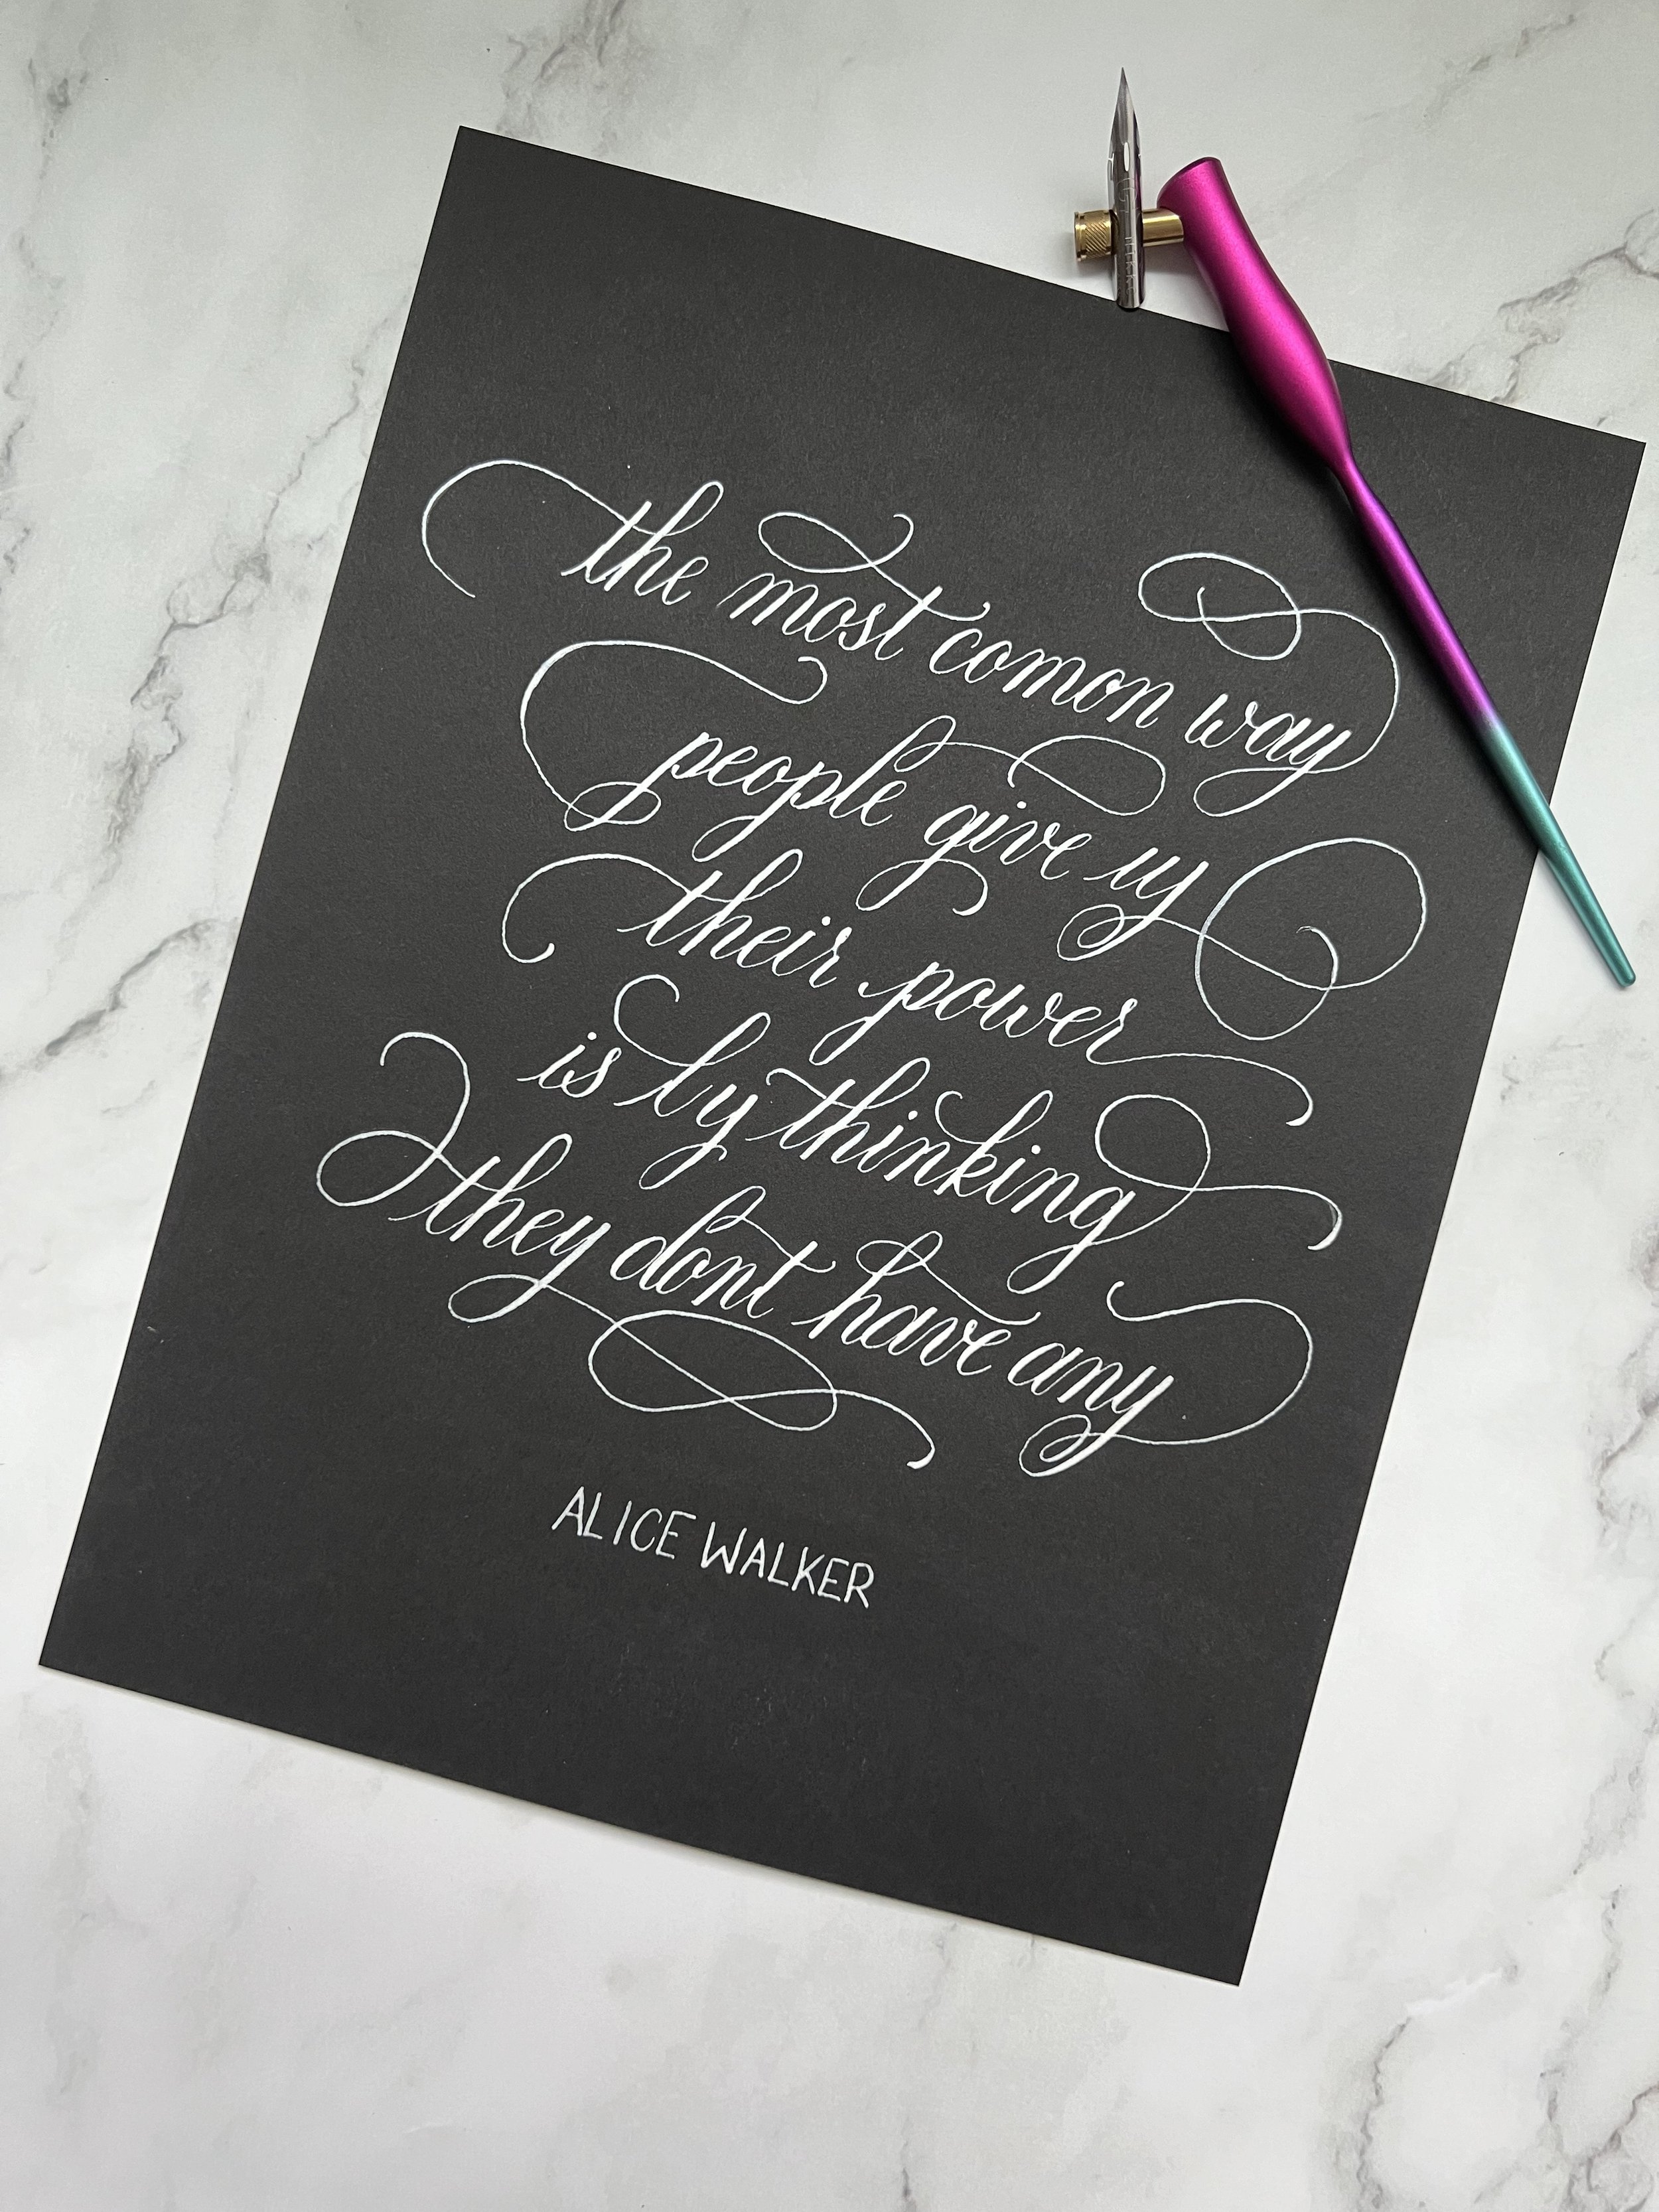 the most comon way
people give up
their power
is by thinking
they dont have any
ALICE WALKER